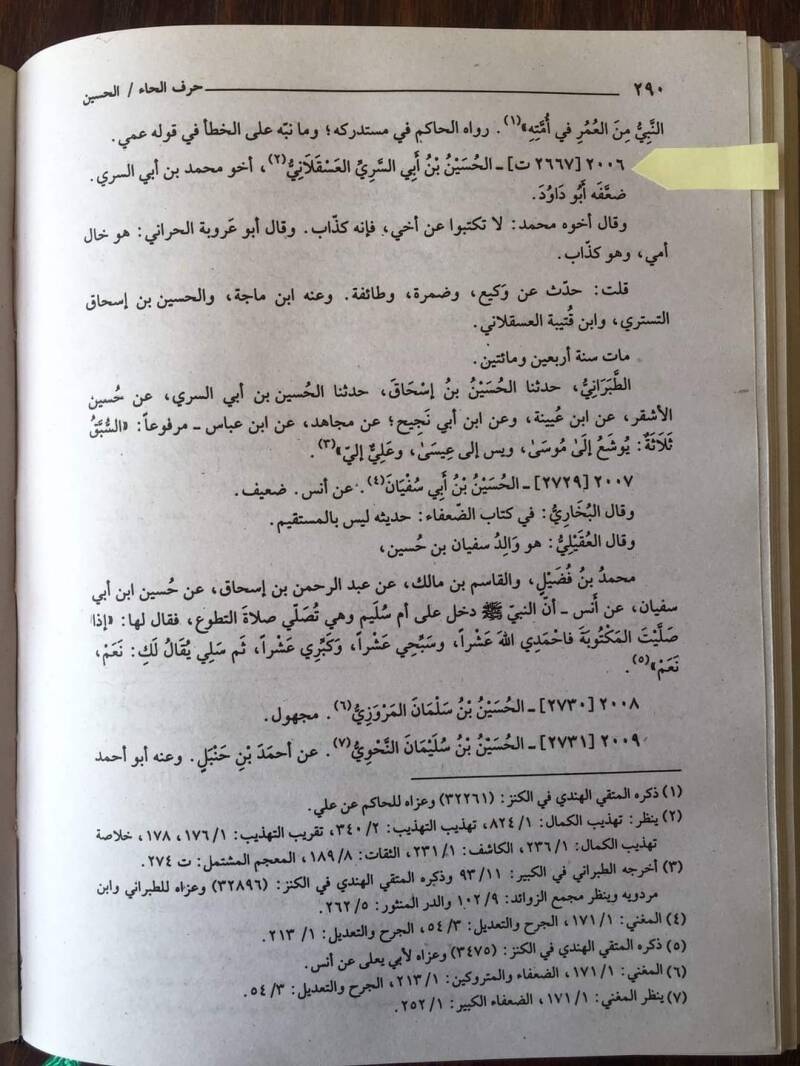 ٢٩٠ حرف الحاء / الحسين
النَّبِيُّ مِنَ العُمُرِ في أُمَّتِهِ»(١). رواه الحاكم في مستدركه؛ وما نبّه على الخطأ في قوله عمي.
٢٠٠٦ [٢٦٦٧ ت] ـ الحُسَيْنُ بْنُ أَبِي السَّرِيِّ العَسْقَلَانِيُّ(٢)، أخو محمد بن أبي السري.
ضعَّفَه أَبُو دَاوُدَ.
وقال أخوه محمد: لا تكتبوا عن أخي، فإنه كذّاب. وقال أبو عَروبة الحراني: هو خال
أمي، وهو كذّاب.
قلت: حدّث عن وَكيع، وضمرة، وطائفة. وعنه ابن ماجة، والحسين بن إسحاق
التستري، وابن قُتيبة العسقلاني.
مات سنة أربعين ومائتين.
الطَّبَرَانِيُّ، حدثنا الحُسَيْنُ بنُ إسْحَاقَ، حدثنا الحُسين بن أبي السري، عن حُسين
الأشقر، عن ابن عُيينة، وعن ابن أبي نَجيح؛ عن مجاهد، عن ابن عباس ـ مرفوعاً: «السُّبَّقُ
ثَلَاثَةٌ: يُوشَعُ إلَىٰ مُوسَىٰ، ويس إلى عِيسَىٰ، وعَلِيٌّ إليّ»(٣).
٢٠٠٧ [٢٧٢٩] ـ الحُسَيْنُ بْنُ أَبِي سُفْيَانَ(٤). عن أنس. ضعيف.
وقال البُخَارِيُّ: في كتاب الضّعفاء: حديثه ليس بالمستقيم.
وقال العُقَيْلِيُّ: هو وَالِدُ سفيان بن حُسين،
محمدُ بنُ فُضَيْلٍ، والقاسم بن مالك، عن عبد الرحمن بن إسحاق، عن حُسين ابن أبي
سفيان، عن أَنس ـ أنّ النبيّ ﷺ دخل على أم سُلَيم وهي تُصَلّي صلاةَ التطوع، فقال لها: «إذا
صَلَّيْتَ المَكْتُوبَةَ فاحْمَدِي اللهَ عَشْراً، وسَبِّحِي عَشْراً، وَكَبِّرِي عَشْراً، ثم سَلِي يُقَالُ لَكِ: نَعَمْ،
نَعَمْ»(٥).
٢٠٠٨ [٢٧٣٠] ـ الحُسَيْنُ بْنُ سَلْمَانَ المَرْوَزِيُّ(٦). مجهول.
٢٠٠٩ [٢٧٣١] ـ الحُسَيْنُ بْنُ سُلَيْمَانَ النَّحْوِيُّ(٧). عن أحمَدَ بْنِ حَنْبَلٍ. وعنه أبو أحمد
(١) ذكره المتقي الهندي في الكنز: (٣٢٢٦١) وعزاه للحاكم عن علي.
(٢) ينظر: تهذيب الكمال: ١/ ٨٢٤، تهذيب التهذيب: ٢/ ٣٤٠، تقريب التهذيب: ١/ ١٧٦، ١٧٨، خلاصة
تهذيب الكمال: ١/ ٢٣٦، الكاشف: ١/ ٢٣١، الثقات: ٨/ ١٨٩، المعجم المشتمل: ت ٢٧٤.
(٣) أخرجه الطبراني في الكبير: ١١/ ٩٣ وذكره المتقي الهندي في الكنز: (٣٢٨٩٦) وعزاه للطبراني وابن
مردويه وينظر مجمع الزوائد: ٩/ ١٠٢ والدر المنثور: ٥/ ٢٦٢.
(٤) المغني: ١/ ١٧١، الجرح والتعديل: ٣/ ٥٤، الجرح والتعديل: ١/ ٢١٣.
(٥) ذكره المتقي الهندي في الكنز: (٣٤٧٥) وعزاه لأبي يعلى عن أنس.
(٦) المغني: ١/ ١٧١، الضعفاء والمتروكين: ١/ ٢١٣، الجرح والتعديل: ٣/ ٥٤.
(٧) ينظر المغني: ١/ ١٧١، الضعفاء الكبير: ١/ ٢٥٢.